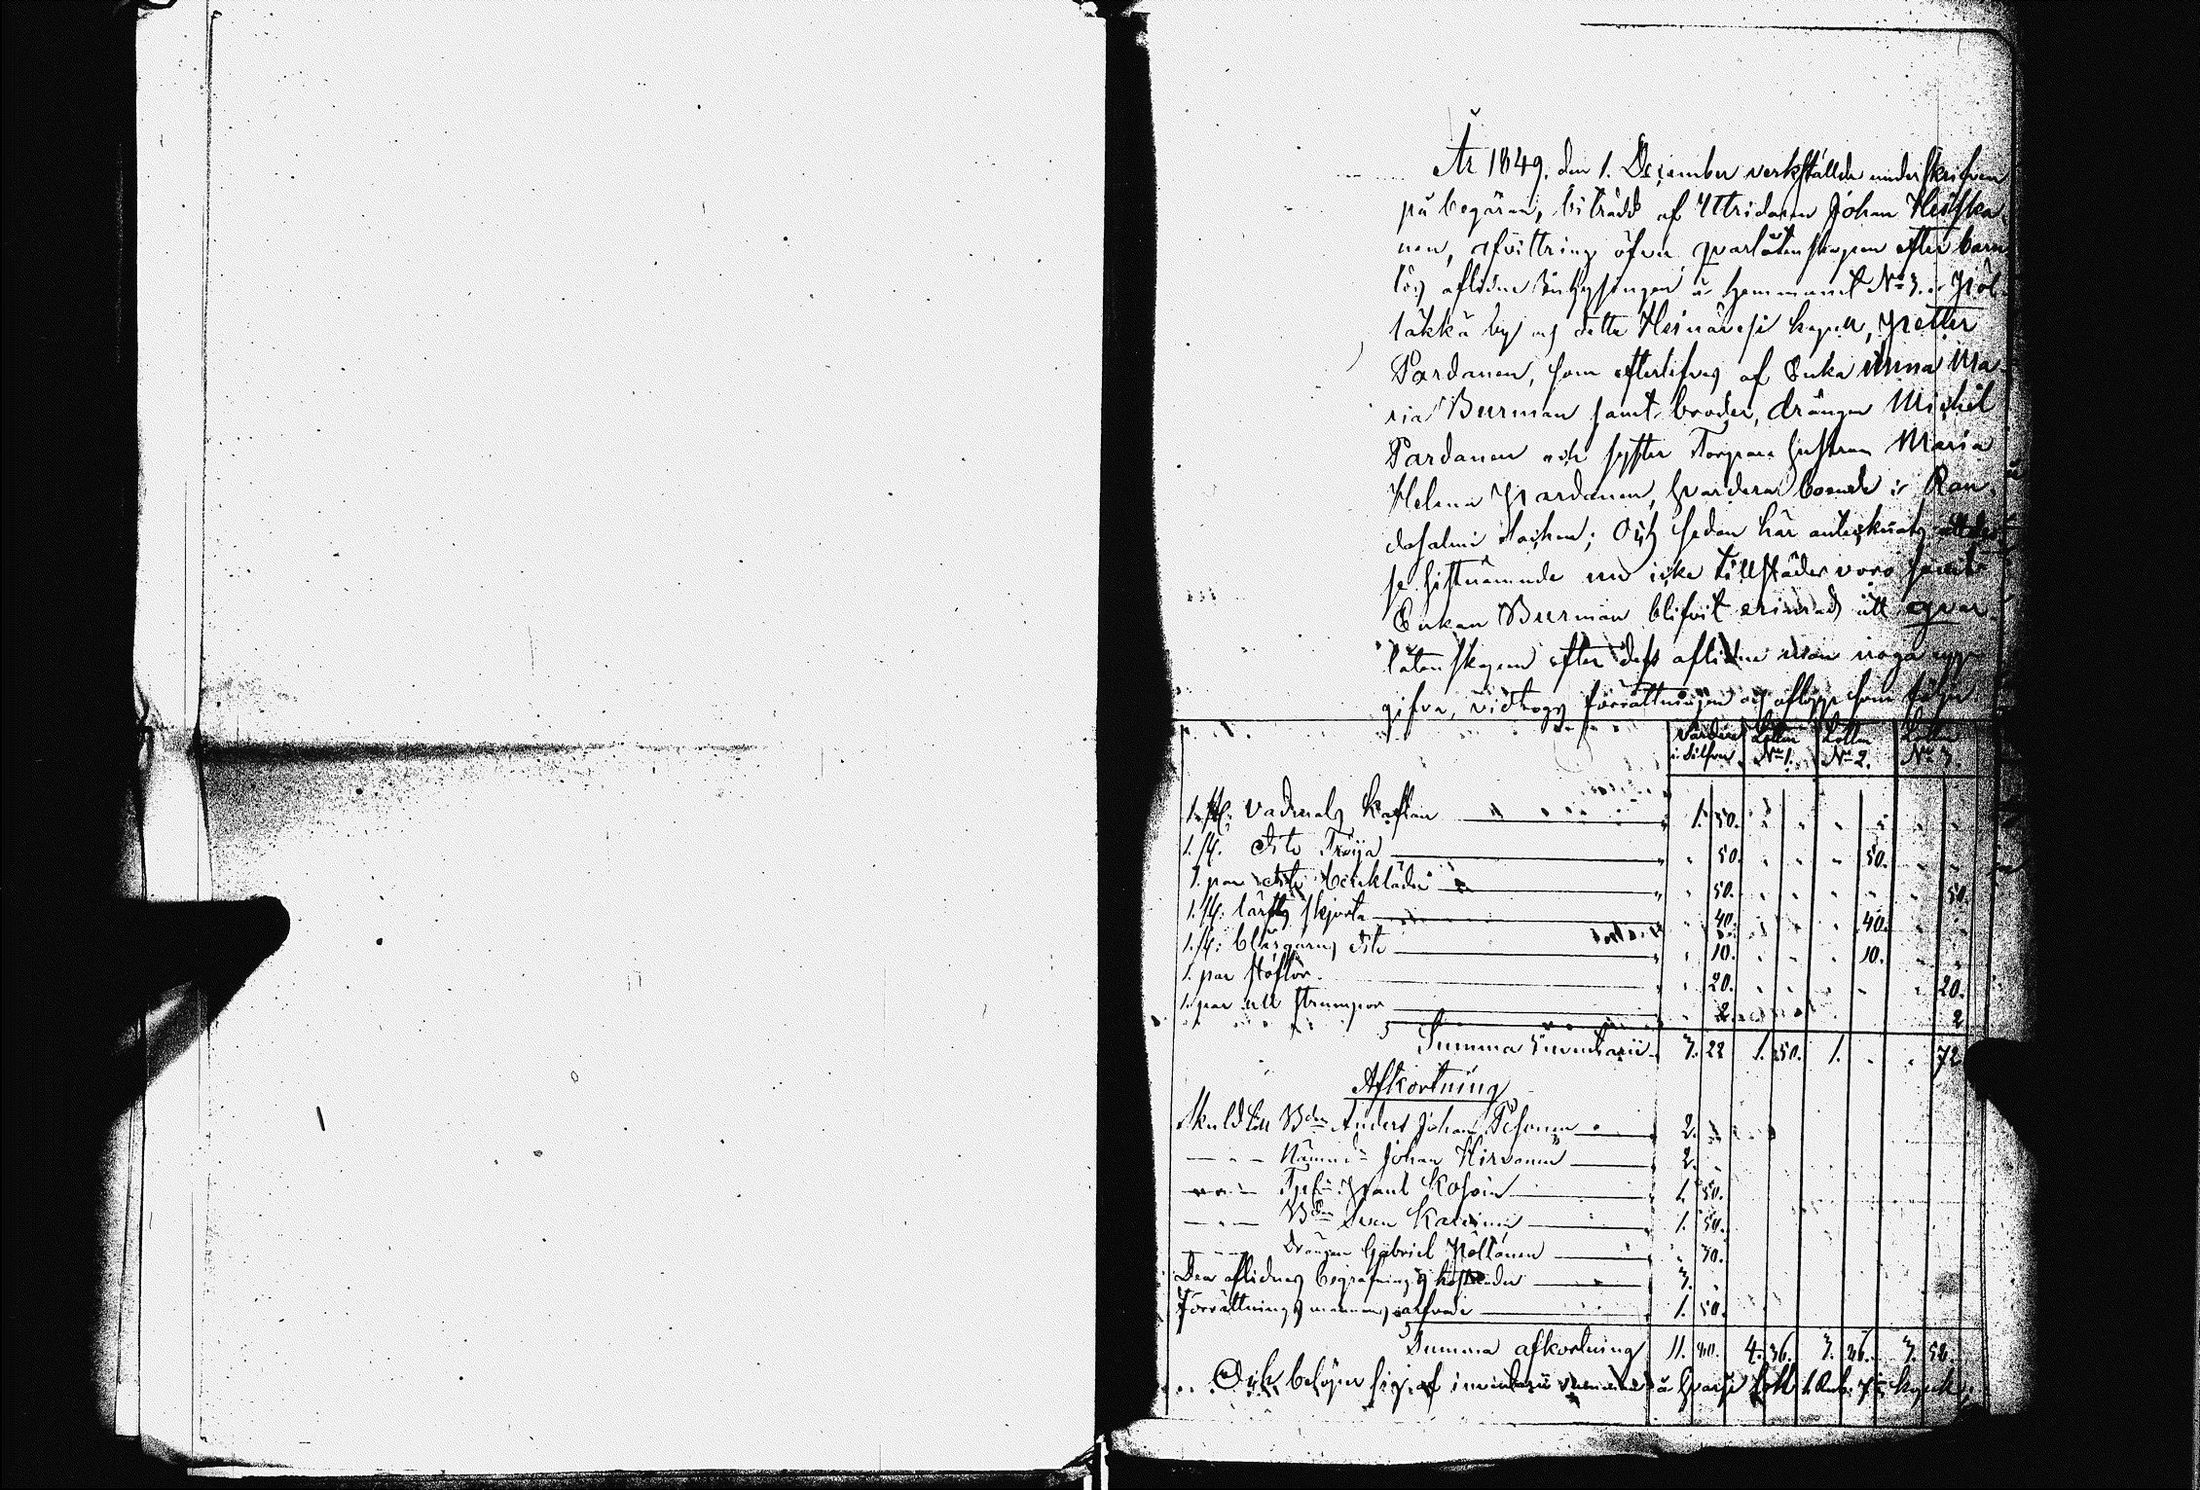 År 1849. den 1. December verkställde underskrifven
på begäran, biträdd af Uttridaren Johan Heiska
nen, afvittring öfver qvarlåtenskapen efter barn
lös aflidne Inhysingen å hemmanet No 3. i Pöl
läkkä by och detta Heinävesi kapell, Petter
Pardanen, som efterlefves af Enka Anna Ma
ria Burman samt broder, drängen Michel
Pardanen och syster Torpare hustrun Maria
Helena Pardanen, hvardera boende i Ran
dasalmi Socken; Och sedan här antecknats att des
se sistnämnde nu icke tillstädes voro samt
Enkan Burman blifvit erinrad att qvar
låtenskapen efter dess aflidne man noga upp
gifva, vidtogs förrättningen och aflopp som följer
Värdering i Silfver Lotten No 1. Lotten No 2. Lotten No 3.
1. st: Vadmals Kaftan " 1. 50. " " " " " "
1. st. dito Tröija " " 50. " " " 50. " "
1. par dito benkläder " " 50. " " " " " 50.
1. st: lärfts skjorta " 40. " " " 40. " "
1. st: blårgarns dito " " 10. " " " 10. " "
1. par stöflor " " 20. " " " " " 20.
1. par ull strumpor " 2. 2
Summa Inventarii 3. 22 1. 50. 1. " " 72
Afkortning
Skuld till Bden Anders Johan Pesonen 2. "
— " — Nämnd: Johan Hirvonen 2. "
— " — Paul Kosoin 1. 50.
— " — Bden Sven 1. 50.
— " — Drängen Gabriel Pöllänen " 30.
Den aflidnes begrafnings kostnader 3. "
Förrättningsmannens arfvode 1. 50.
Summa afkortning 11. 80. 4. 36. 3. 86. 3. 58.
Och belöper sig af inventarii summan å hvarje lott 1. Rub. 7 kopek